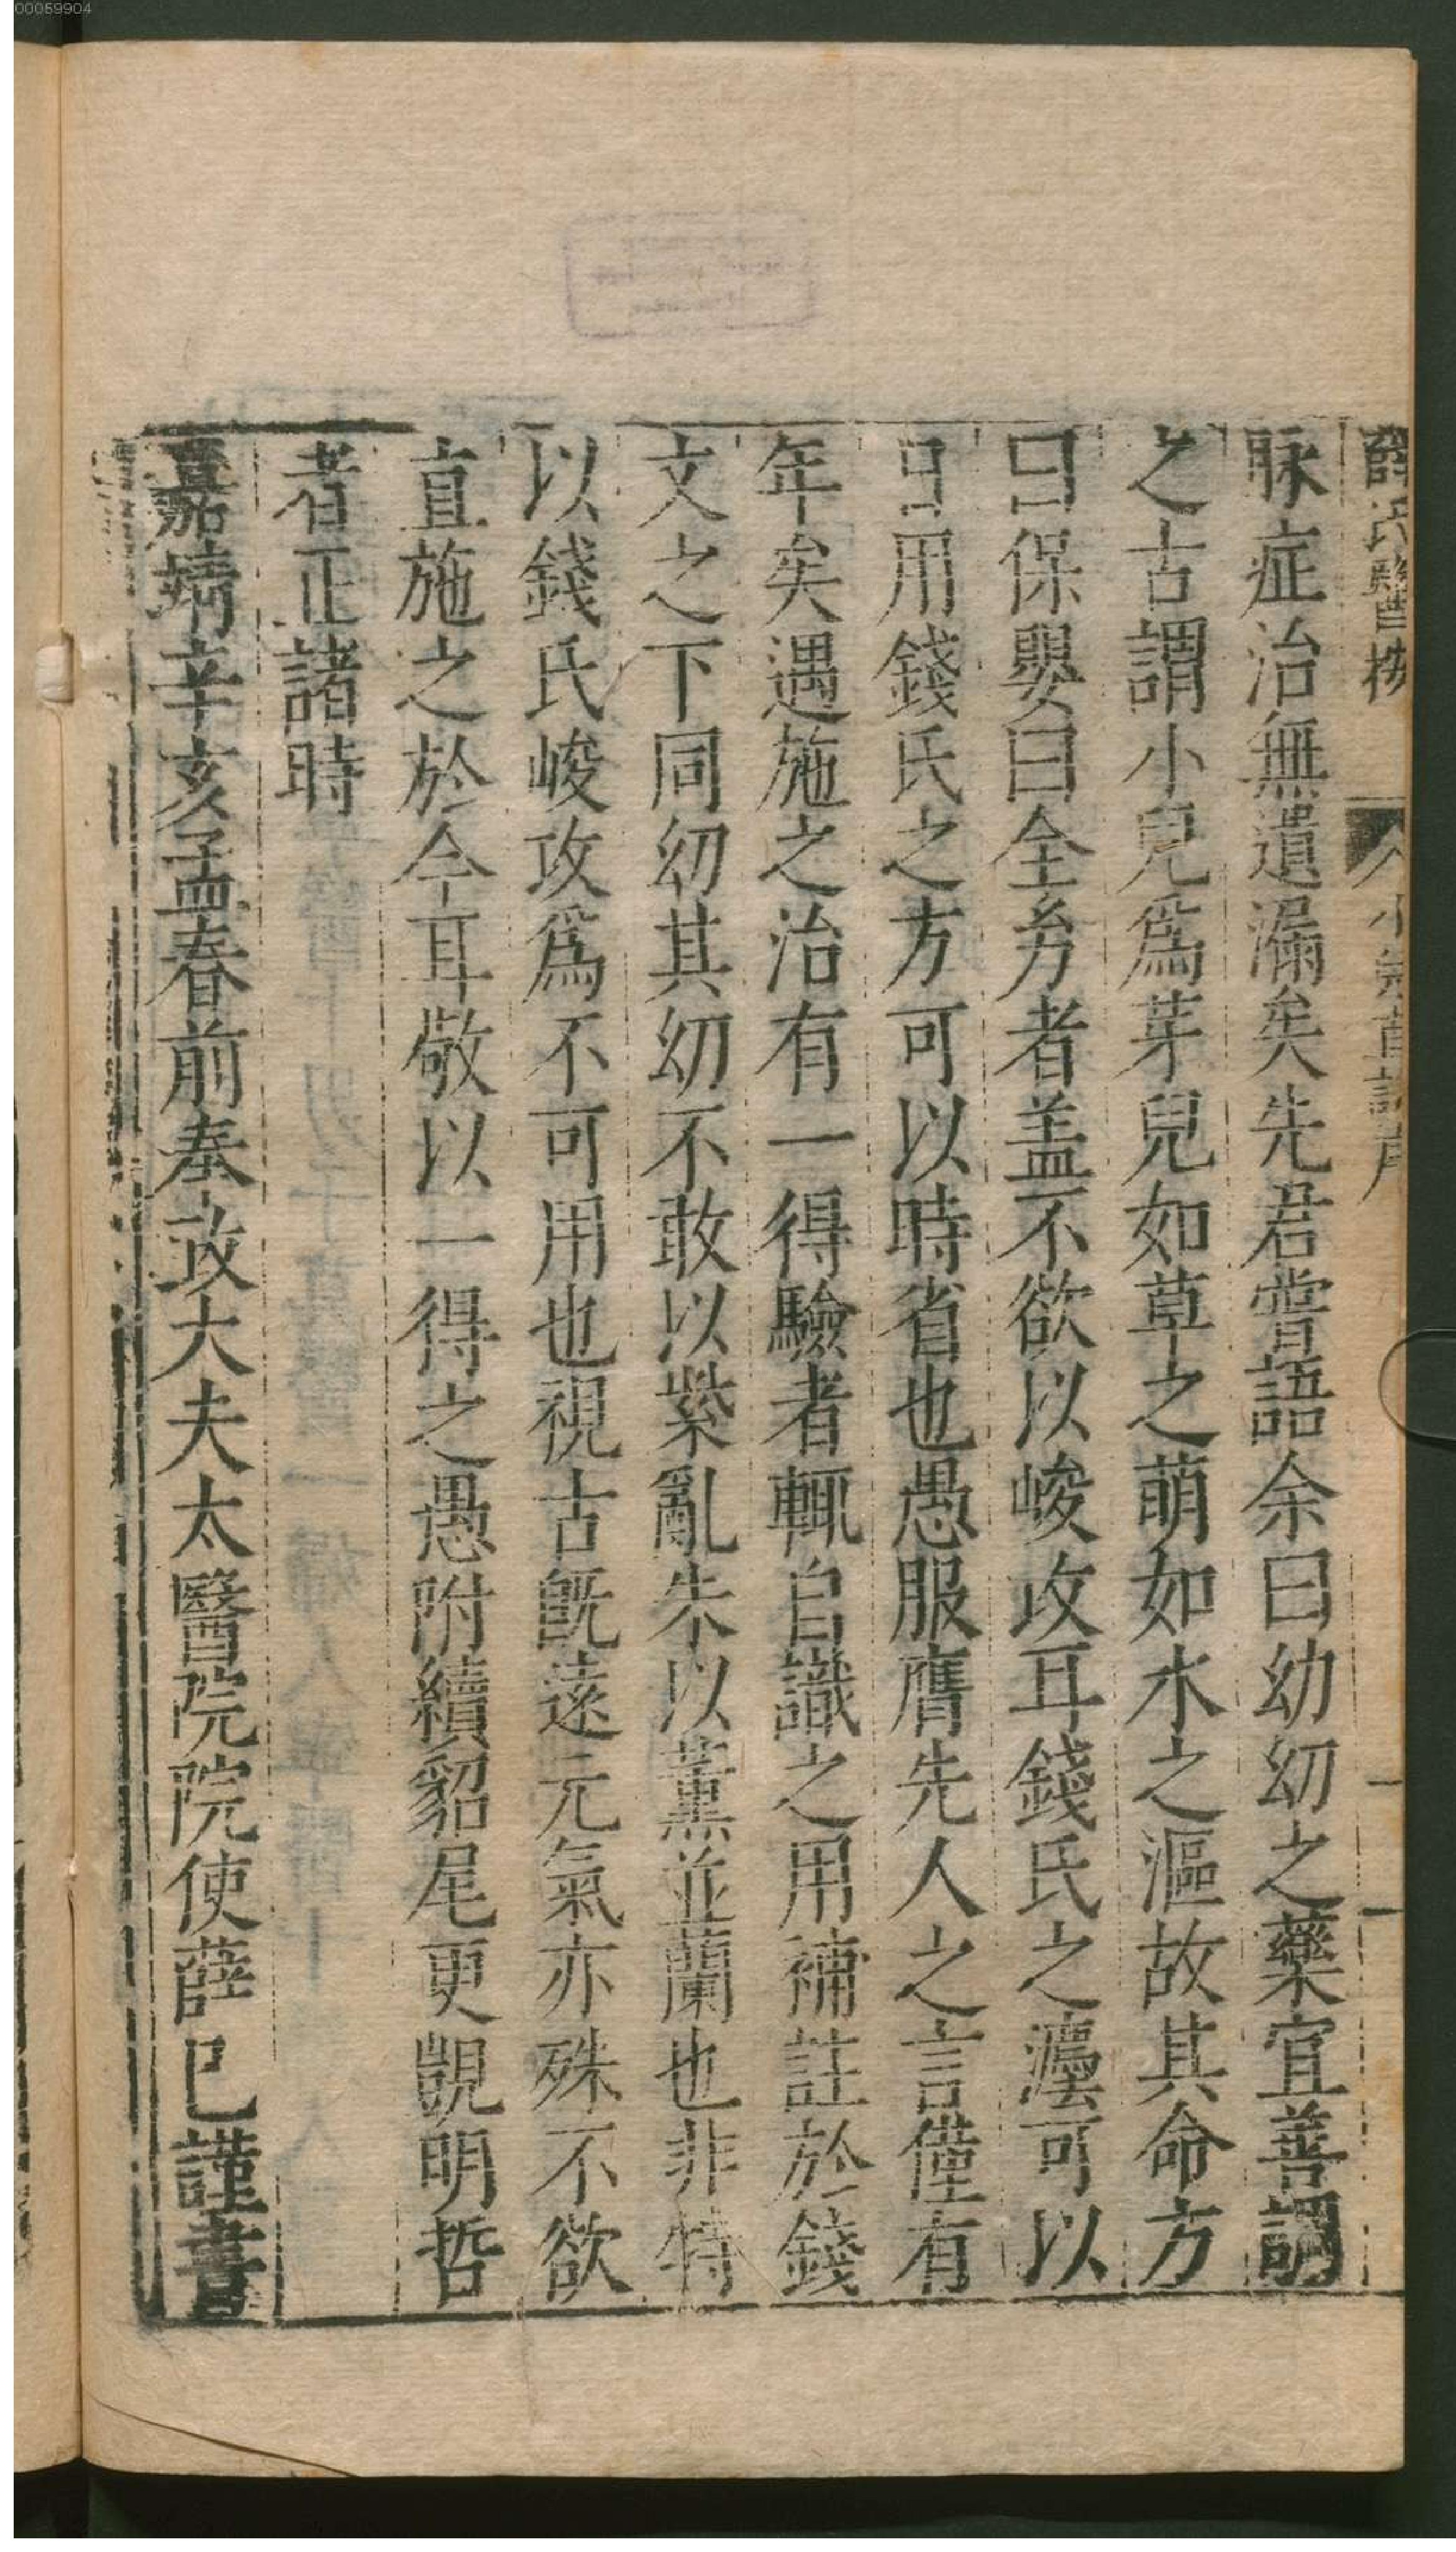 00059904
薛氏醫按 小兒直訣序
脉症治無遺漏矣先君嘗語余曰幼幼之藥宜善調
之古謂小兒爲芽兒如草之萌如水之漚故其命方
曰保嬰曰全㓜者盖不欲以峻攻耳錢氏之灋可以
日用錢氏之方可以時省也愚服膺先人之言僅有
年矣遇施之治有一得驗者輒自識之用補註於錢
文之下同㓜其幼不敢以紫亂朱以薰並蘭也非特
以錢氏峻攻爲不可用也視古旣遠元氣亦殊不欲
直施之於今耳敬以一得之愚附續貂尾更覬明哲
者正諸時
嘉靖辛亥孟春前奉政大夫太醫院院使薛巳謹書